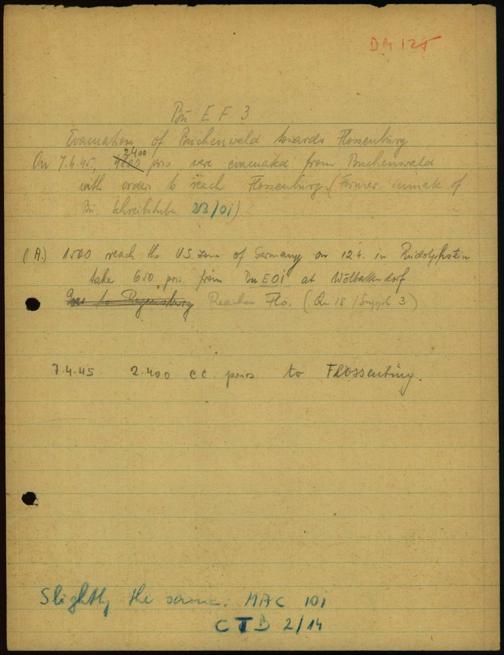 DM 125
Bu E F 3
Evacuation of Buchenwald towards Flossenbürg
On 7.4.45, 2400 pris were evacuated from Buchenwald
with order to reach Flossenbürg (Former inmate of
Bu. Schreibstube 23/01)
(A.) 1500 reach the US zone of Germany on 12.4. in Rudolphstein
take 610 pris. from Bu EOI at Wölbattendorf
Reaches Flo. ( Bu 18 / 3 )
7.4.45 2.400 cc. priso to Flossenbürg.
Slightly the same: MAC 101
CTD 2/14